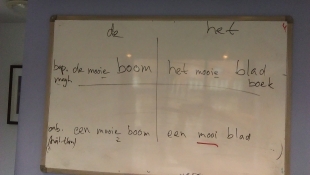 de het
bep. de mooie boom het mooie blad
boek
onb. een mooie boom een mooi blad